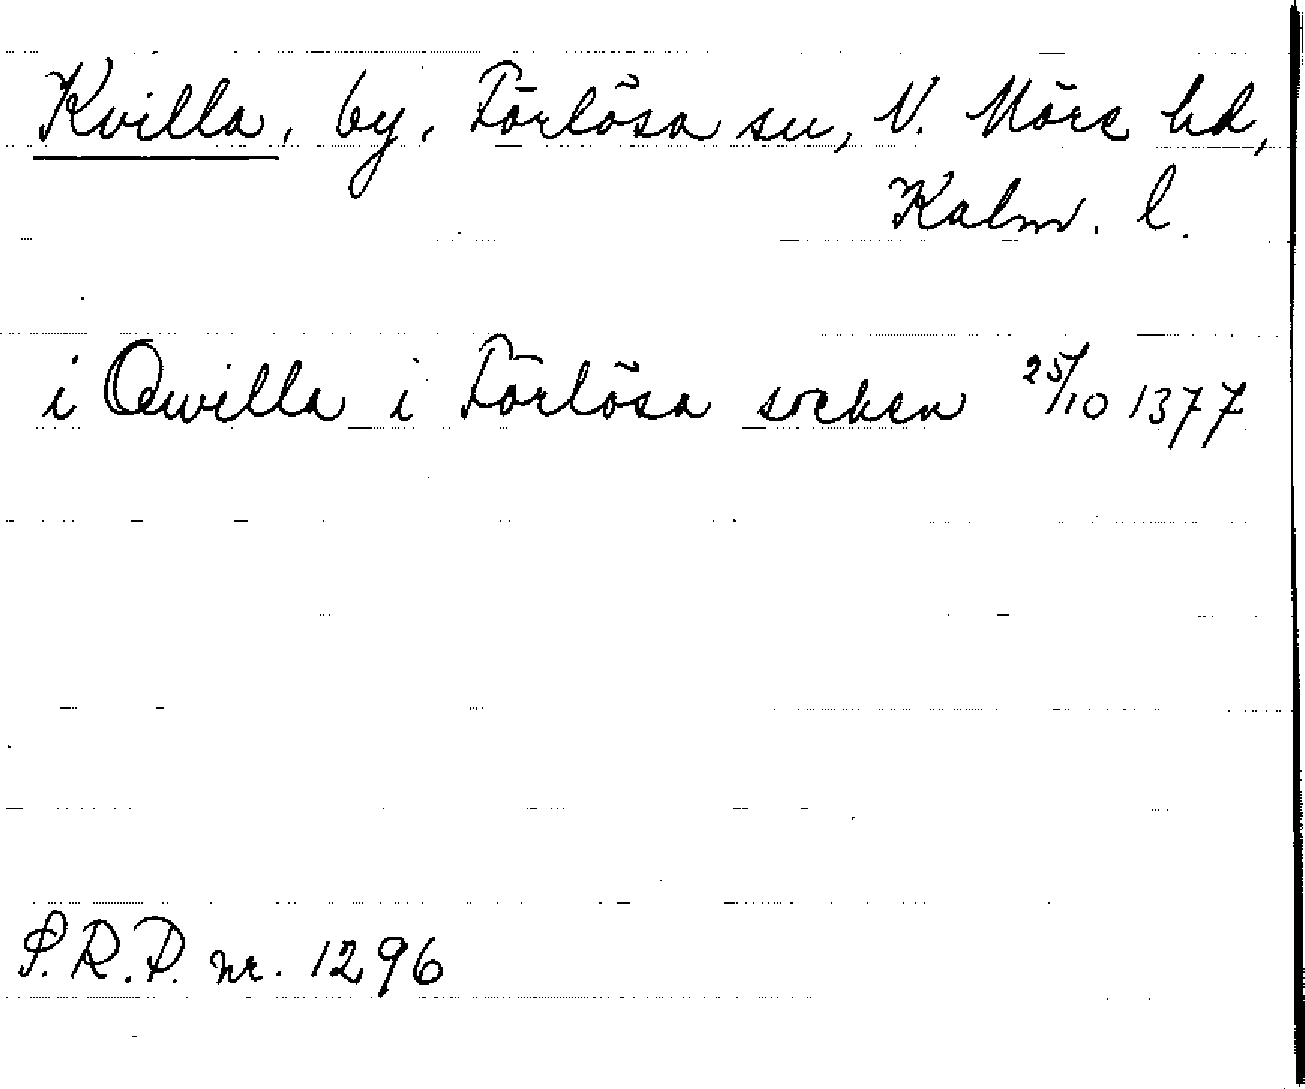 Kvilla, by, Förlösa sn, N. Möre hd,
Kalm. l.
i Qwilla i Förlösa socken 25/10 1377
S.R.P. nr. 1296